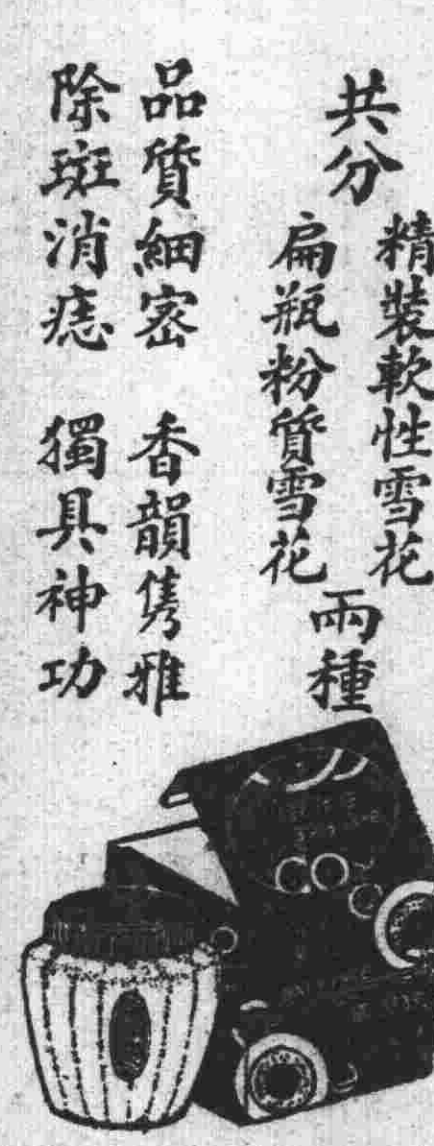 共分
精裝軟性雪花
扁瓶粉質雪花
兩種
品質細密 香韻雋雅
除斑消痣 獨具神功